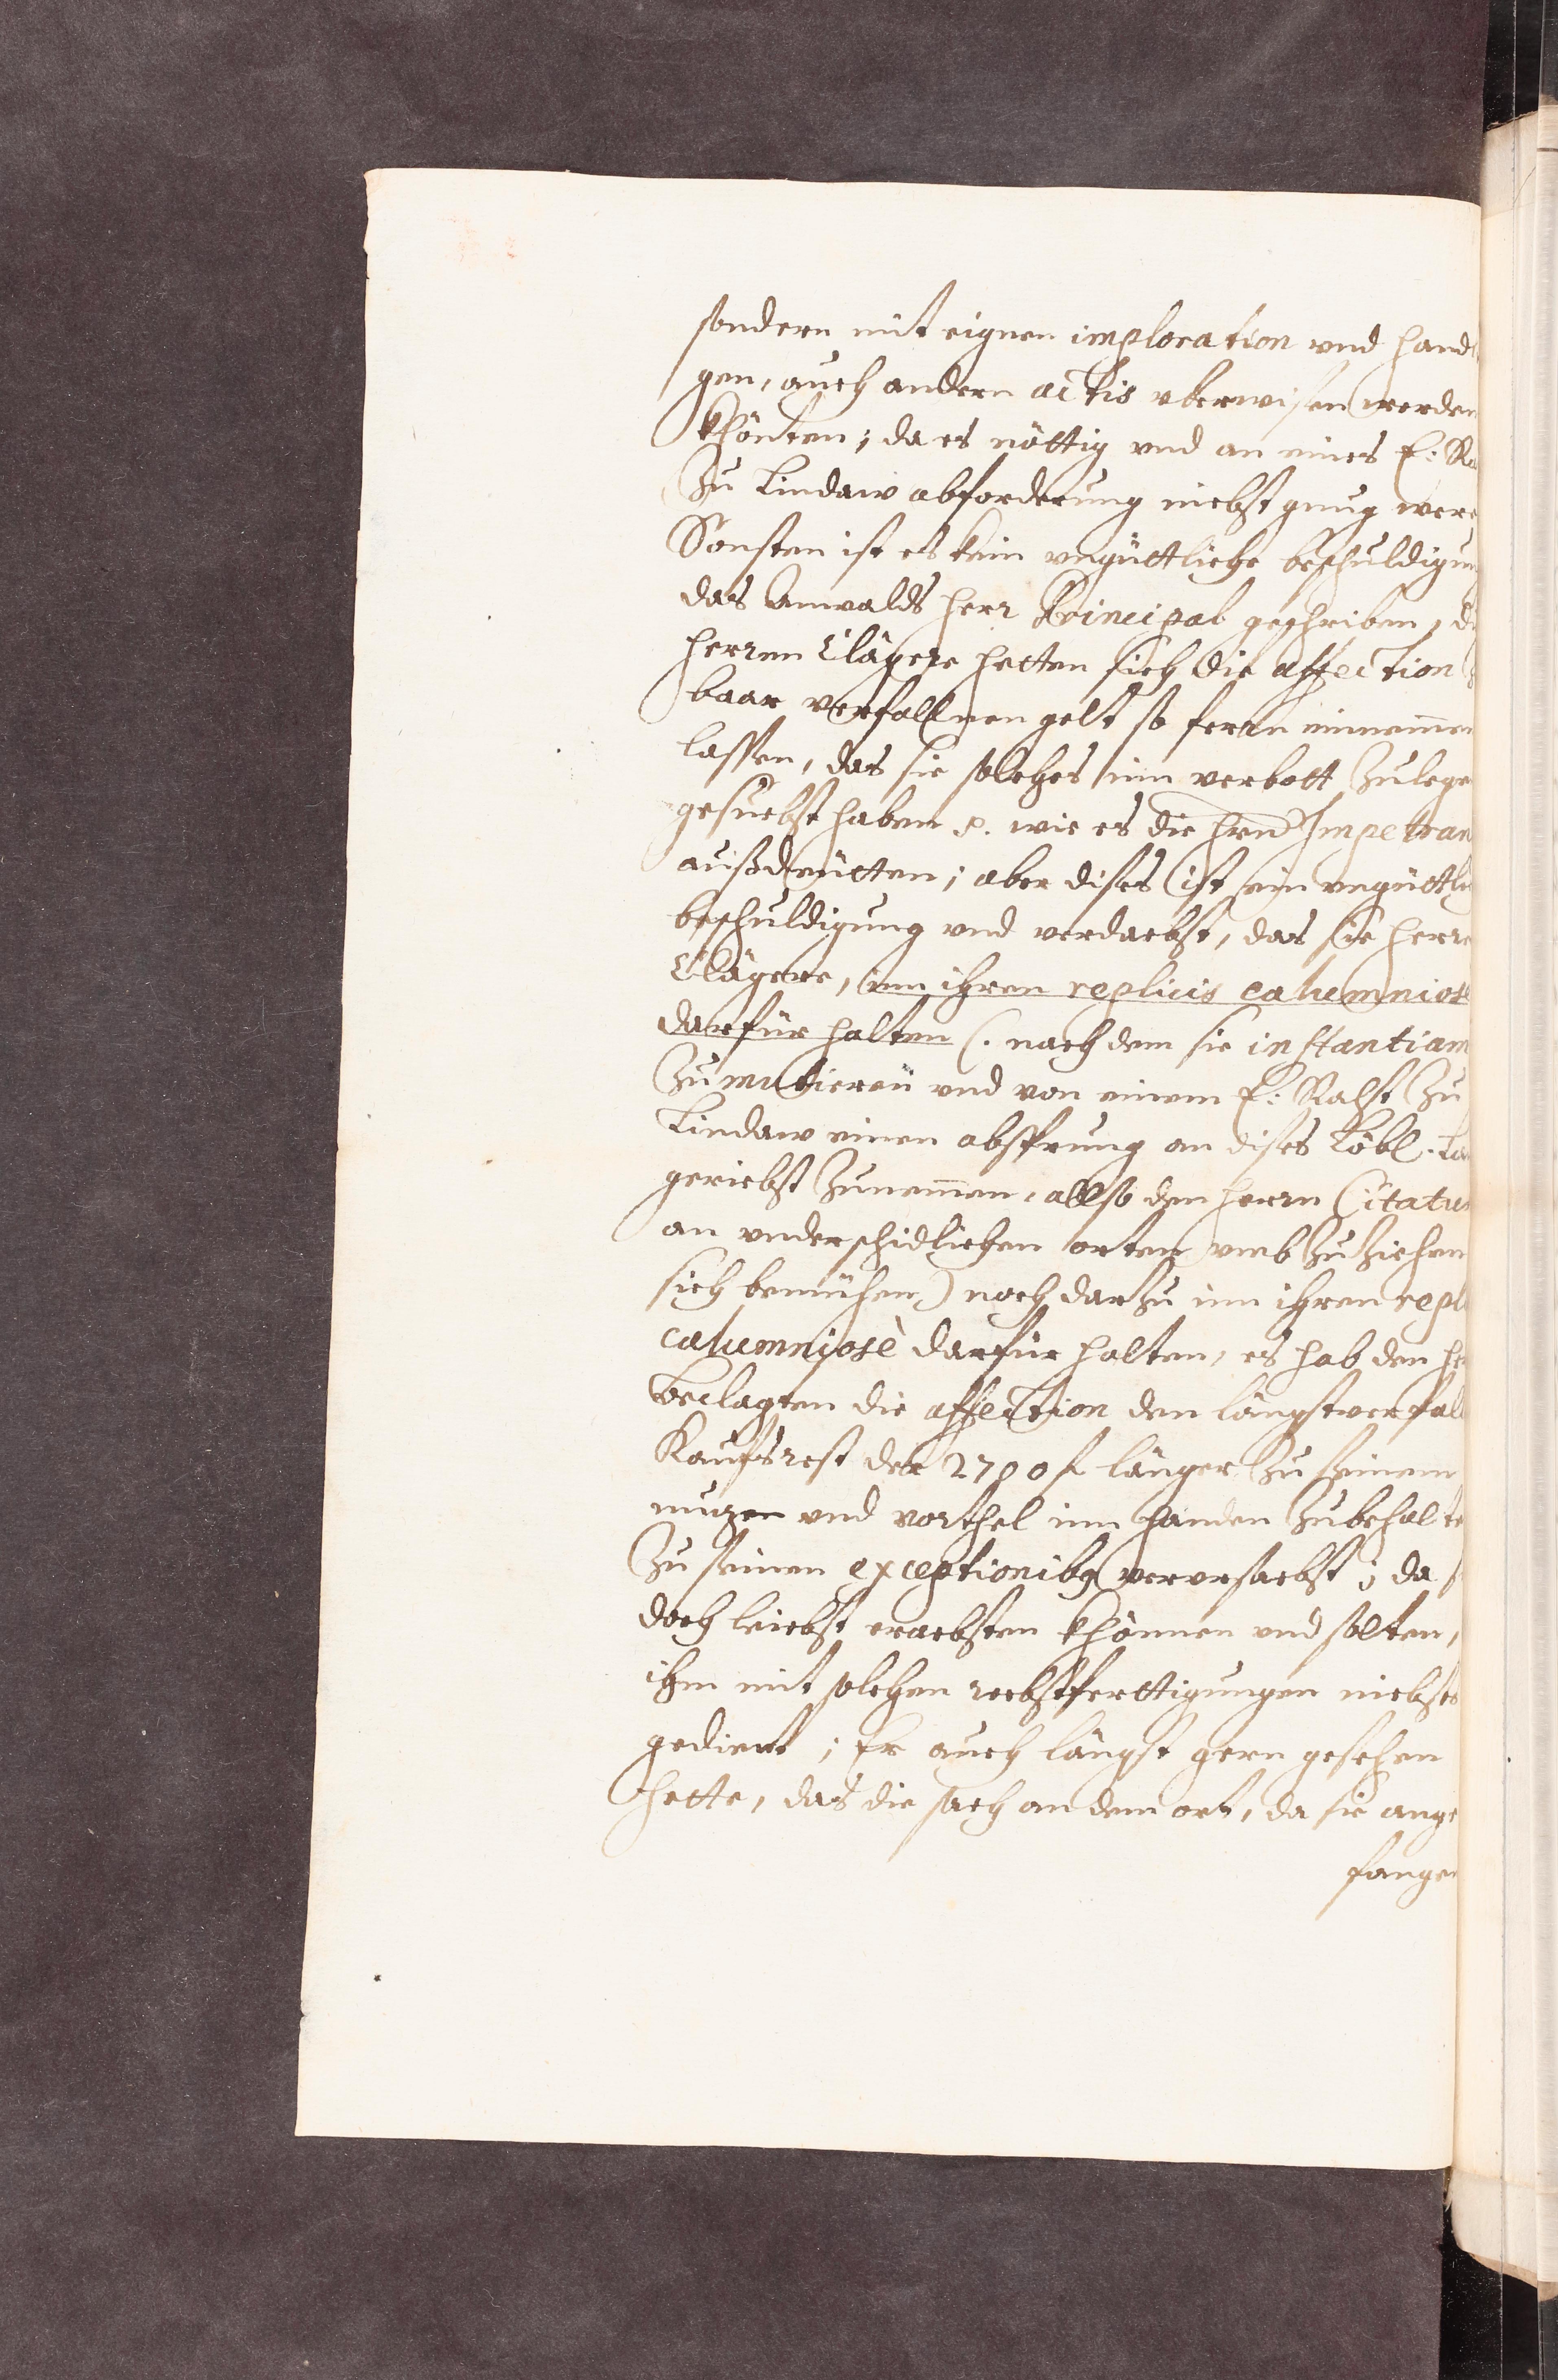 sondern mit eignen imploration vnd hand
gen, auch andern actis vberwisen werden
khönten; da es nöttig vnd an eines E: Ra
Zu Lindaw abforderung nicht gnug were
Sonsten ist es kein vngüettliche beschuldigun
das Anwalds herr Principal geschriben, di
herren Clägere hetten sich die affection
baar verfallnen gelt so ferrn einnemen
lassen, das sie solches inn verbott Zulege
gesucht haben p. wie es die hrn Impetran
außdeutten; aber dises ist ein vngüettli
beschuldigung vnd verdacht, das sie herre
Clägere, inn ihren replicis calumniose
darfür halten (. nach dem sie instantiam
Zumutieren vnd von einem E: Raht Zu
Lindaw einen absprung an dises Löbl. La
gericht Zunemen, allso den herrn Citatum
an vnderschidlichen orten vmb Zu Ziehen
sich bemühen) noch darzu inn ihren repli
calumniosè darfür halten, es hab den he
beclagten die affection den längst verfall
Kaufsrest der 2700 fl länger Zu seinem
nuzen vnd vorthel inn handen Zubehalte
Zu seinen exceptionibus verursacht; da s
doch leicht erachten khönnen vnd solten,
ihm mit solchen rechtferttigungen nichts
gedient; Er auch längst gern gesehen
hette, das die sach an dem ort, da sie ange
fangen